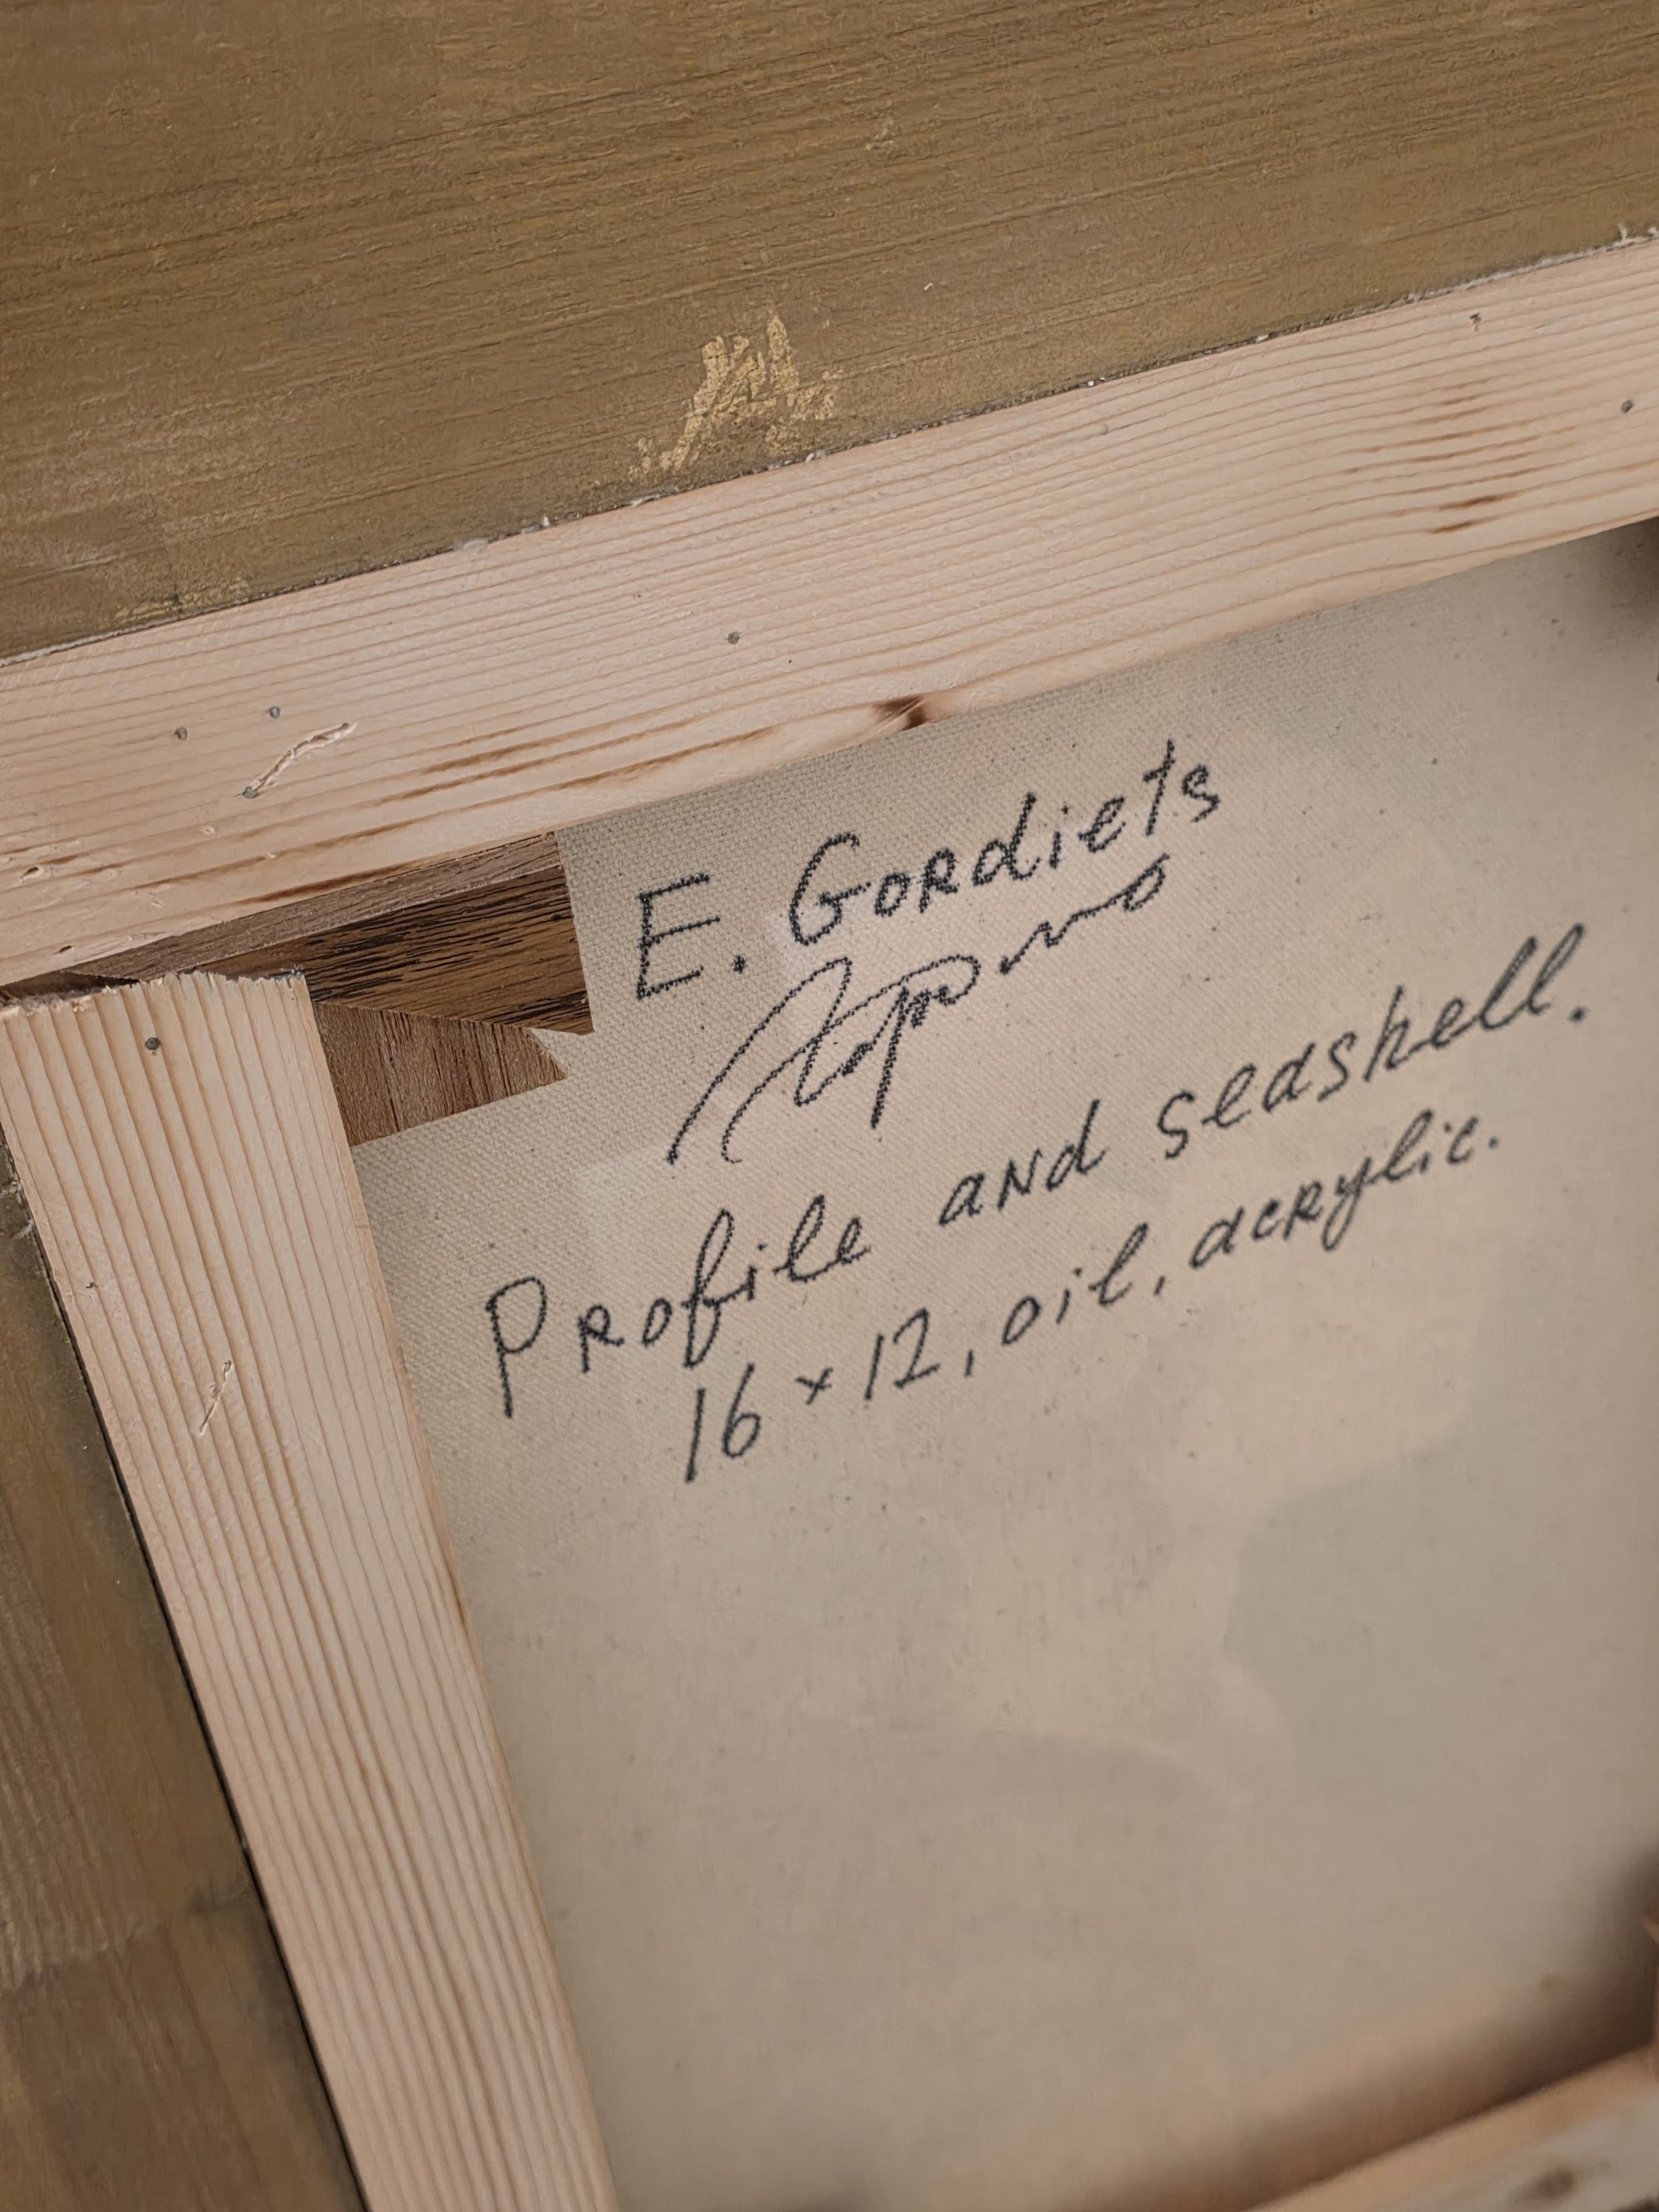 E. Gordiets
Profile and seashell.
16 x 12, oil, acrylic.